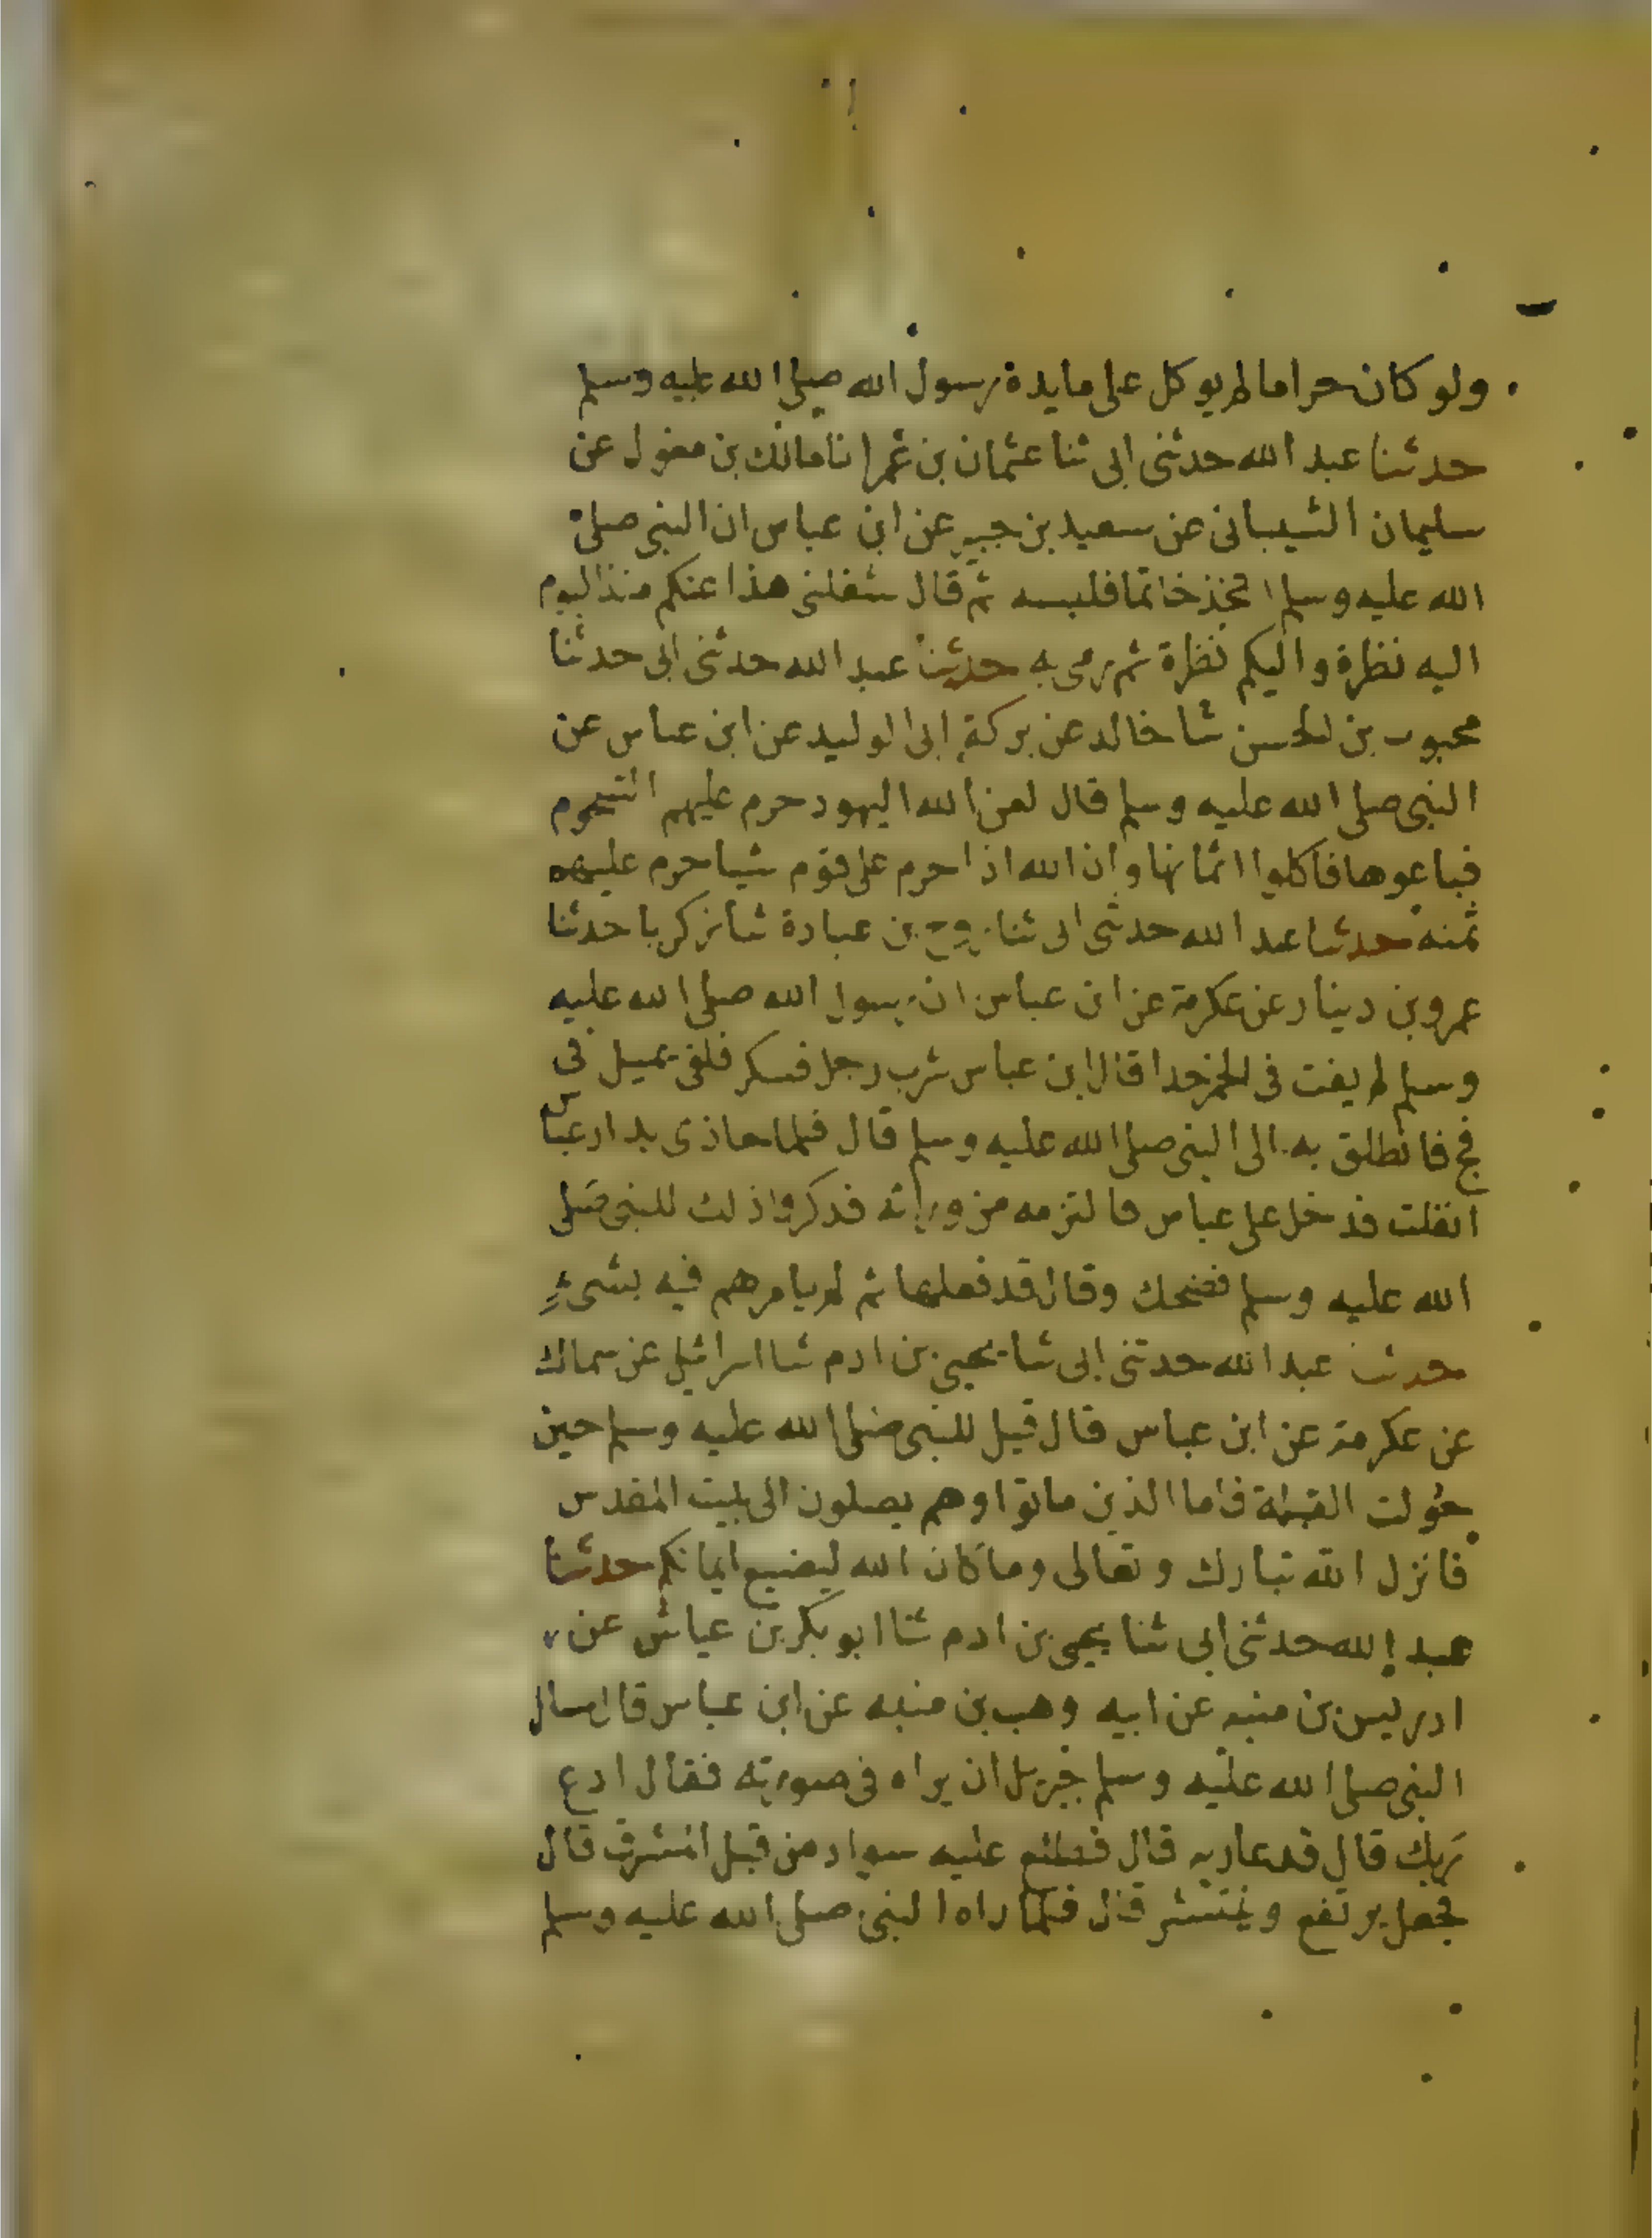 ولو كان حراما لم يوكل على مايدة رسول الله صلى الله عليه وسلم
حدثنا عبد الله حدثنى ابى ثنا عثمان بن عمر انا مالك بن مغول عن
سليمان الشيبانى عن سعيد بن جبير عن ابن عباس ان النبى صلى
الله عليه وسلم اتخذ خاتما فلبسه ثم قال شغلنى هذا عنكم منذ اليوم
اليه نظرة واليكم نظرة ثم رمى به حدثنا عبد الله حدثنى ابى حدثنا
محبوب بن الحسن ثنا خالد عن بركة ابى الوليد عن ابن عباس عن
النبى صلى الله عليه وسلم قال لعن الله اليهود حرم عليهم الشحوم
فباعوها فاكلوا اثمانها وان الله اذا حرم على قوم شيا حرم عليهم
ثمنه حدثنا عبد الله حدثنى ابى ثنا روح بن عبادة ثنا زكريا حدثنا
عمرو بن دينار عن عكرمة عن ابن عباس ان رسول الله صلى الله عليه
وسلم لم يقت فى الخمر حدا قال ابن عباس شرب رجل فسكر فلقى يميل فى
فج فانطلق به الى النبى صلى الله عليه وسلم قال فلما حاذى بدار عباس
انفلت فدخل على عباس فالتزمه من ورائه فذكروا ذلك للنبى صلى
الله عليه وسلم فضحك وقال قد فعلها ثم لم يامرهم فيه بشىء
حدثنا عبد الله حدثنى ابى ثنا يحيى بن ادم ثنا اسرائيل عن سماك
عن عكرمة عن ابن عباس قال قيل للنبى صلى الله عليه وسلم حين
حولت القبلة فما الذين ماتوا وهم يصلون الى بيت المقدس
فانزل الله تبارك وتعالى وما كان الله ليضيع ايمانكم حدثنا
عبد الله حدثنى ابى ثنا يحيى بن ادم ثنا ابو بكر بن عياش عن
ادريس بن منبه عن ابيه وهب بن منبه عن ابن عباس قال سال
النبى صلى الله عليه وسلم جبريل ان يراه فى صورته فقال ادع
ربك قال فدعا ربه قال فطلع عليه سواد من قبل المشرق قال
فجعل يرتفع وينتشر قال فلما راه النبى صلى الله عليه وسلم